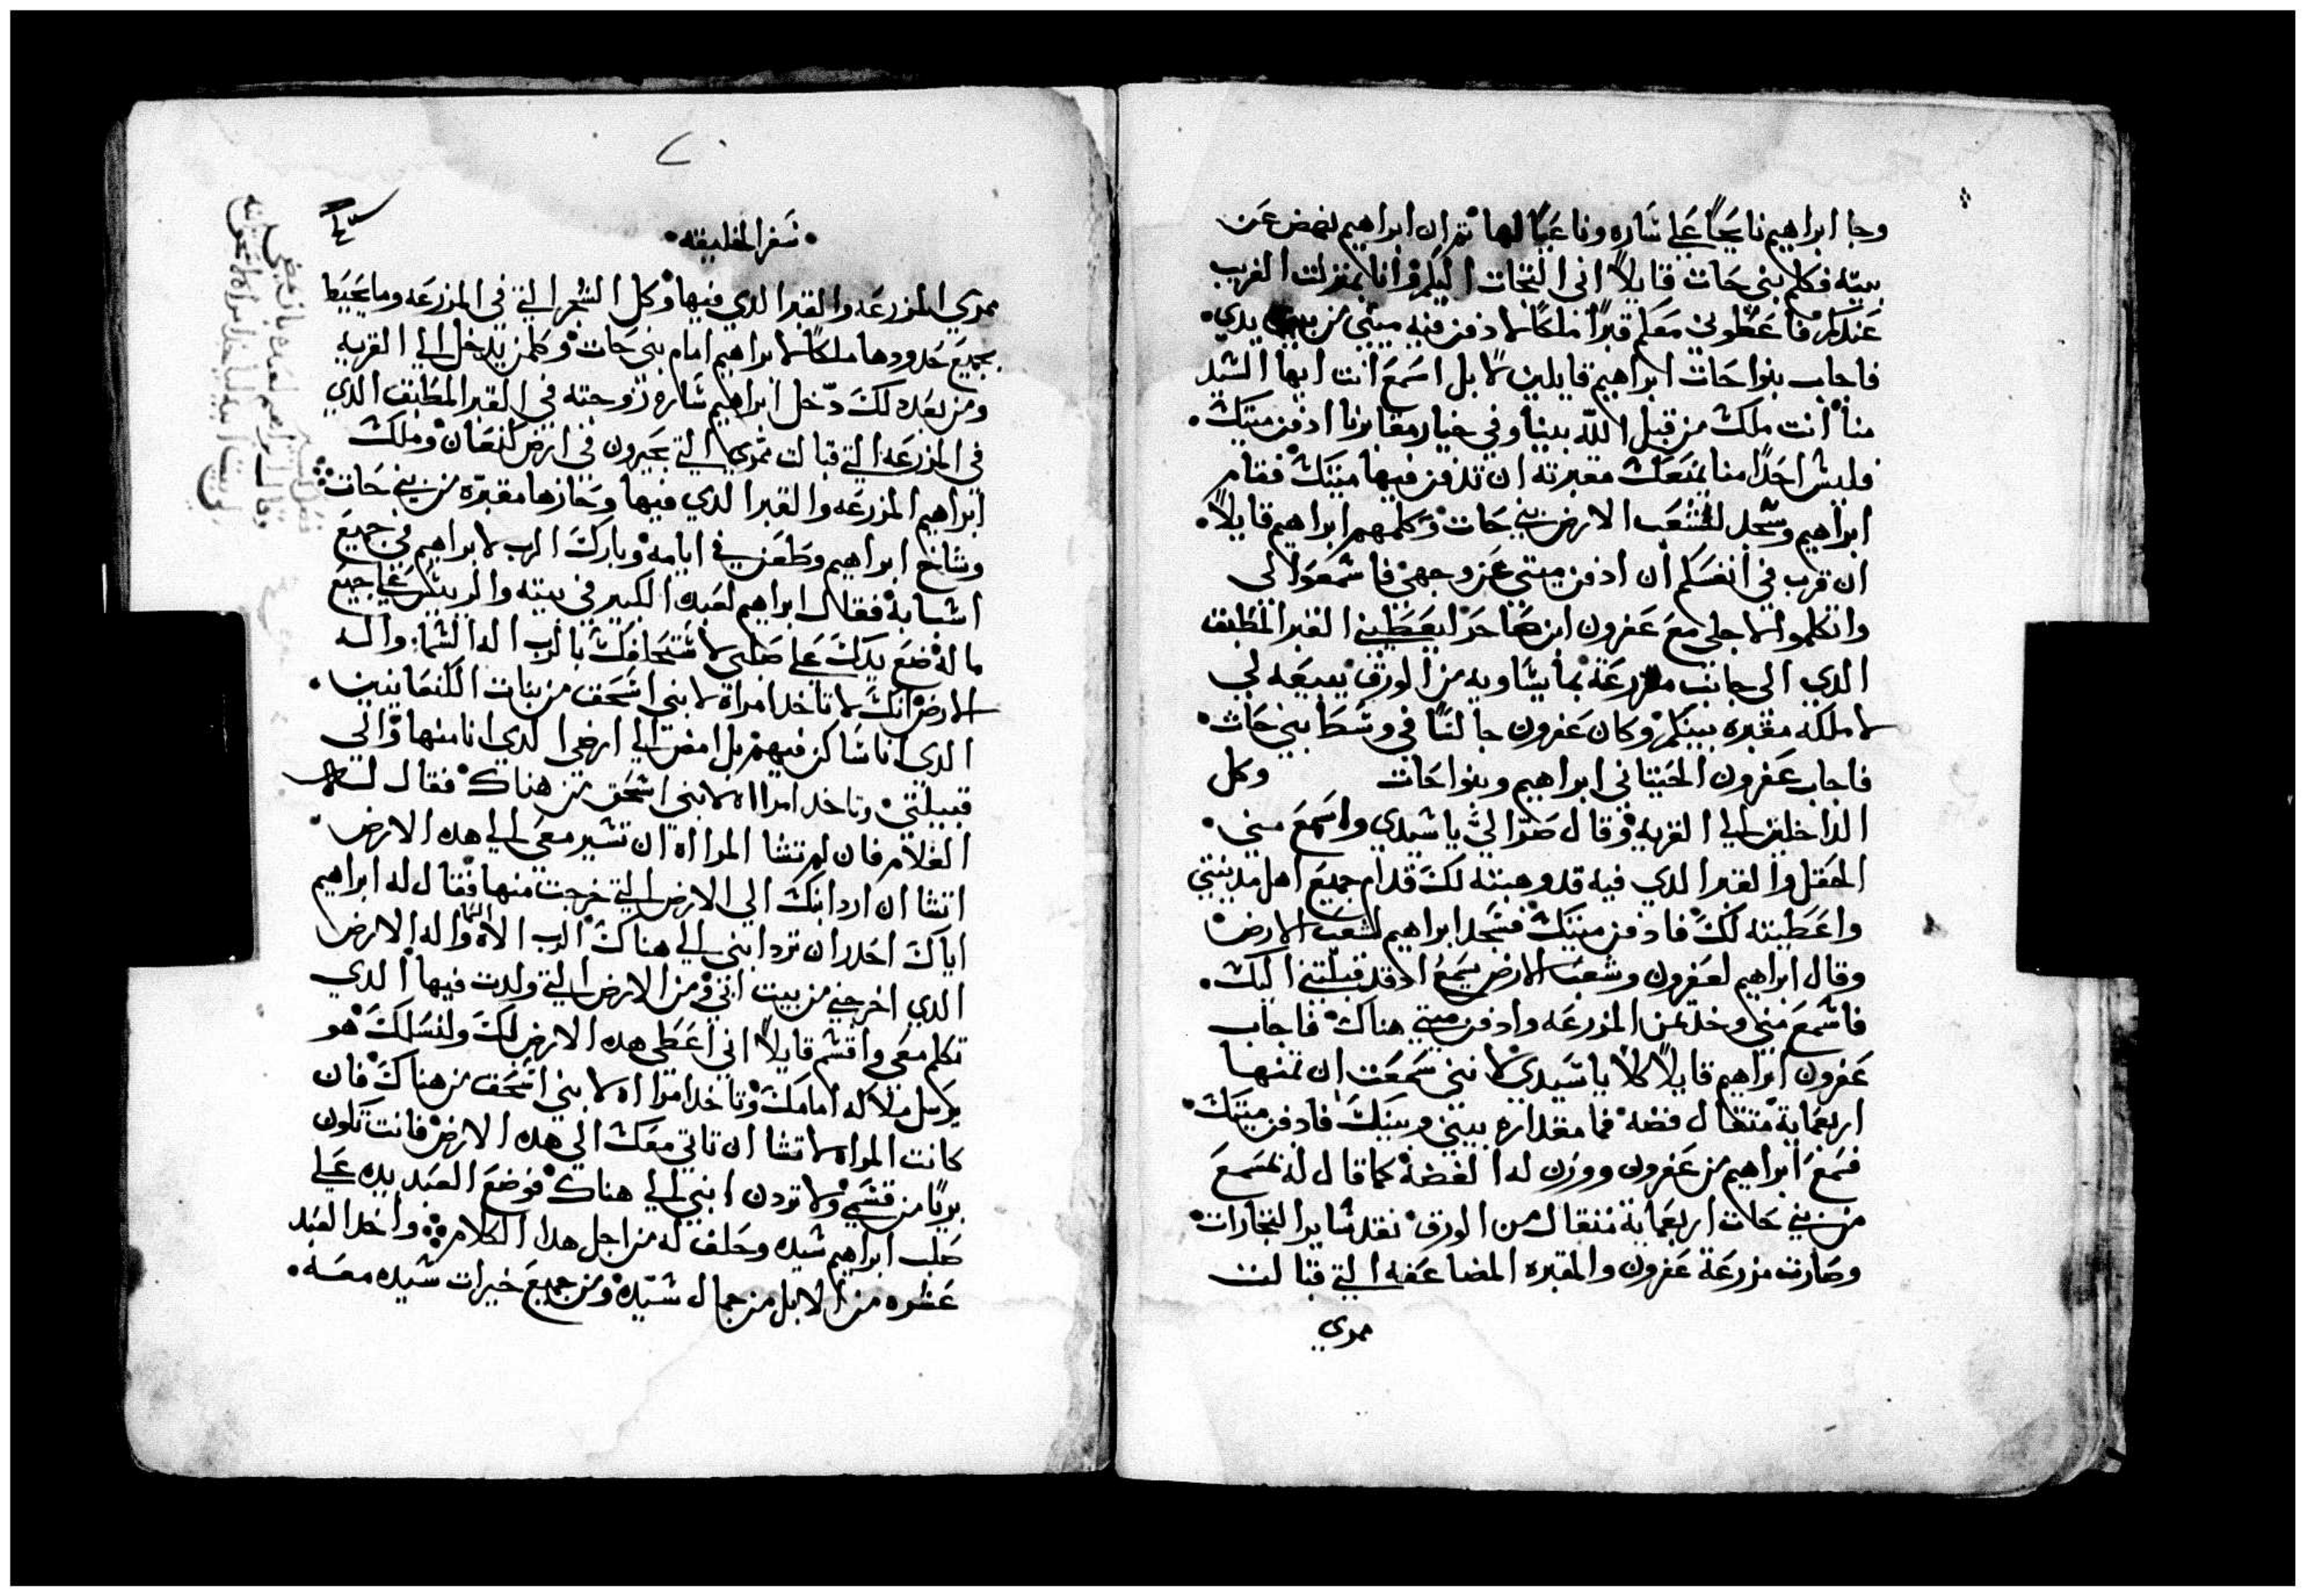 وجا ابراهيم نايحًا علي ساره وناعيًا لها ثم ان ابراهيم نهض عن
بيته فكلم بني حات قايلاً اني التجات اليكم وانا بمنزلت الغريب
عندكم فاعطوني معكم قبرًا ملكًا لادفن فيه ميتي من بين يدي
فاجاب بنوا حات ابراهيم قايلين لا بل اسمع انت ايها السيد
منا انت ملك من قبل الله بينا وفي خيار مقابرنا ادفن ميتك
فليس احدًا منا يمنعك مقبرته ان تدفن فيها ميتك فقام
ابراهيم وسجد لشعب الارض بني حات وكلمهم ابراهيم قايلاً
ان قرب في انفسكم ان ادفن ميتي عن وجهي فاسمعوا لي
واتكلموا لاجلي مع عفرون ابن صاحر ليعطيني القبر المطبق
الذي الى جانب مزرعة بما يساويه من الورق يبيعه لي
لاملكه مقبره بينكم وكان عفرون جالسًا في وسط بني حات
فاجاب عفرون الحيتاني ابراهيم وبنوا حات وكل
الداخلين الي القريه وقال صر الي يا سيدي واسمع مني
الحقل والقبر الدي فيه قد وهبته لك قدام جميع اهل مدينتي
واعطيته لك فادفن ميتك فسجد ابراهيم لشعب الارض
وقال ابراهيم لعفرون وشعب الارض يسمع اذ قد قبلتني اليك
فاسمع مني وخد ثمن المزرعه وادفن ميتي هناك فاجاب
عفرون ابراهيم قايلاً كلا يا سيدي لانني سمعت ان ثمنها
اربعماية مثقال فضه فما مقداره بيني وبينك فادفن ميتك
فسمع ابراهيم من عفرون ووزن له الفضه كما قال له بمسمع
من بني حات اربعماية مثقال من الورق نقد ساير التجارات
وصارت مزرعة عفرون والمقبره المضاعفه التي قبالت
ممري
سفر الخليقه
ممري المزرعه والقبر الدي فيها وكل الشجر التي في المزرعه وما يحيط
بجميع حدودها ملكًا لابراهيم امام بني حات وكلمن يدخل الي القريه
ومن بعد دلك دخل ابراهيم ساره زوجته في القبر المطبق الدي
في المزرعه التي قبالت ممري التي بحبرون في ارض كنعان وملك
ابراهيم المزرعه والقبر الدي فيها وحازها مقبره من بني حات
وشاخ ابراهيم وطعن في ايامه وبارك الرب لابراهيم في جميع
اشيابه فقال ابراهيم لعبده الكبير في بيته والريس علي جميع
ماله ضع يدك علي صلبي لاستحلفك بالرب اله السما واله
الارض انك لا تاخد امراة لابني اسحق من بنات الكنعانيين
الدي انا ساكن فيهم بل امض الي ارضي الدي انا منها والي
قبيلتي وتاخد امرااه لابني اسحق من هناك فقال له
الغلام فان لم تشا المرااه ان تسير معي الي هده الارض
اتشا ان ارد ابنك الي الارض التي خرجت منها فقال له ابراهيم
اياك احدر ان ترد ابني الي هناك الرب الاه السما واله الارض
الدي اخرجني من بيت ابي ومن الارض التي ولدت فيها الدي
تكلم معي واقسم قايلاً اني اعطي هده الارض لك ولنسلك هو
يرسل ملاكه امامك وتاخد امرااه لابني اسحق من هناك فان
كانت المراه لا تشا ان تاتي معك الي هده الارض فانت تكون
بريًا من قسمي ولا تردن ابني الي هناك فوضع العبد يده علي
صلب ابراهيم سيده وحلف له من اجل هدا الكلام واخد العبد
عشره من الابل من جمال سيده ومن جميع خيرات سيده معه